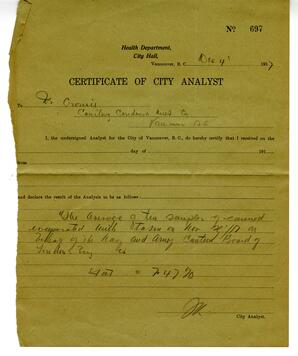 No 697
Health Department,
City Hall,
Vancouver, B. C. Dec 4 1917
CERTIFICATE OF CITY ANALYST
To
I, the undersigned Analyst for the City of Vancouver, B. C., do hereby certify that I received on the
day of 191
and declare the result of the Analysis to be as follows:
The average of ten samples of canned
evaporated milk taken on Nov
of the Navy and Army Canteen Board of
London Eng is
Fat = 7.47%
City Analyst.